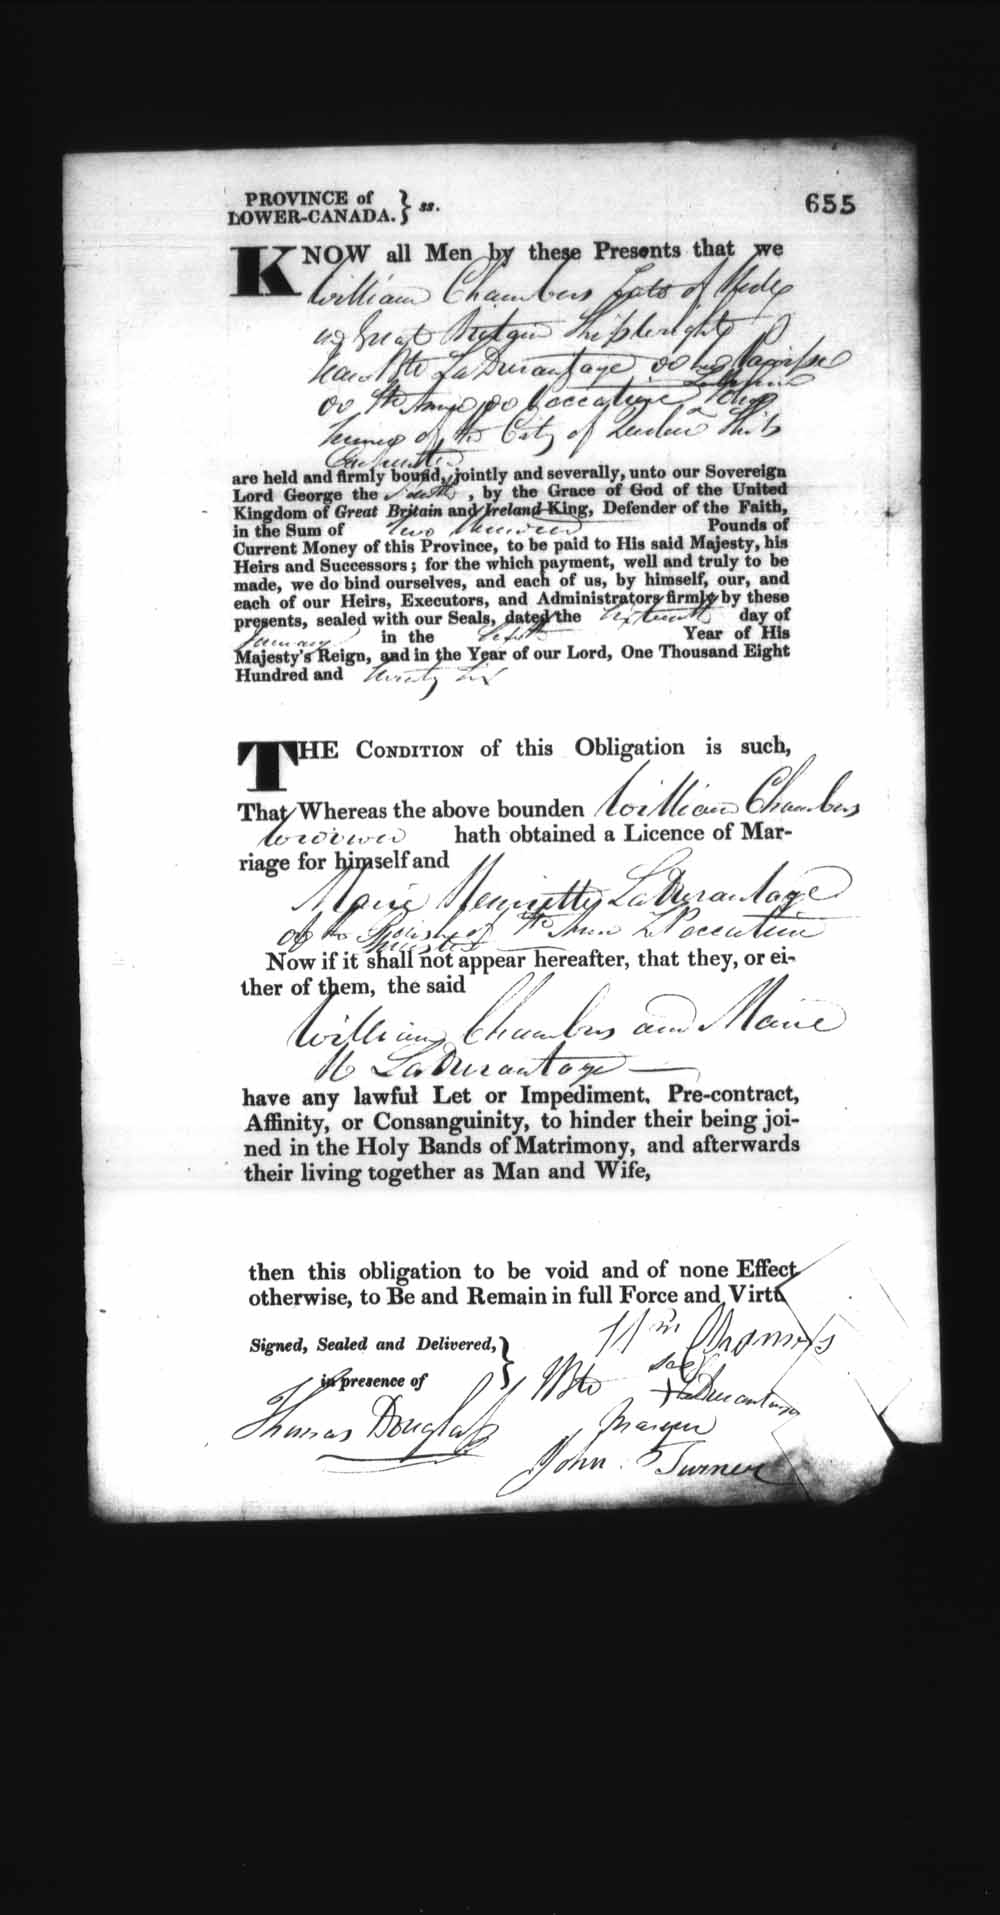 PROVINCE of
LOWER-CANADA. } ss.
655
KNOW all Men by these Presents that we
William Chambers Late of
in Great Britain Shipwright
Jean Bte LaDurantage
John
Turner of the City of Quebec Ship
Carpenter
are held and firmly bound, jointly and severally, unto our Sovereign
Lord George the Fourth, by the Grace of God of the United
Kingdom of Great Britain and Ireland King, Defender of the Faith,
in the Sum of Two Hundred Pounds of
Current Money of this Province, to be paid to His said Majesty, his
Heirs and Successors; for the which payment, well and truly to be
made, we do bind ourselves, and each of us, by himself, our, and
each of our Heirs, Executors, and Administrators firmly by these
presents, sealed with our Seals, dated the Sixteenth day of
January in the Sixth Year of His
Majesty's Reign, and in the Year of our Lord, One Thousand Eight
Hundred and Twenty Six
THE CONDITION of this Obligation is such,
That Whereas the above bounden William Chambers
Widower hath obtained a Licence of Mar-
riage for himself and
Marie Henriette LaDurantage
of the Parish of Ste Anne La Poccatiere
Spinster
Now if it shall not appear hereafter, that they, or ei-
ther of them, the said
William Chambers and Marie
H LaDurantage
have any lawful Let or Impediment, Pre-contract,
Affinity, or Consanguinity, to hinder their being joi-
ned in the Holy Bands of Matrimony, and afterwards
their living together as Man and Wife,
then this obligation to be void and of none Effect
otherwise, to Be and Remain in full Force and Virtu
Signed, Sealed and Delivered,
in presence of
Wm Chambers
Thomas Douglass
sa
JBte + LaDurantage
marque
John Turner